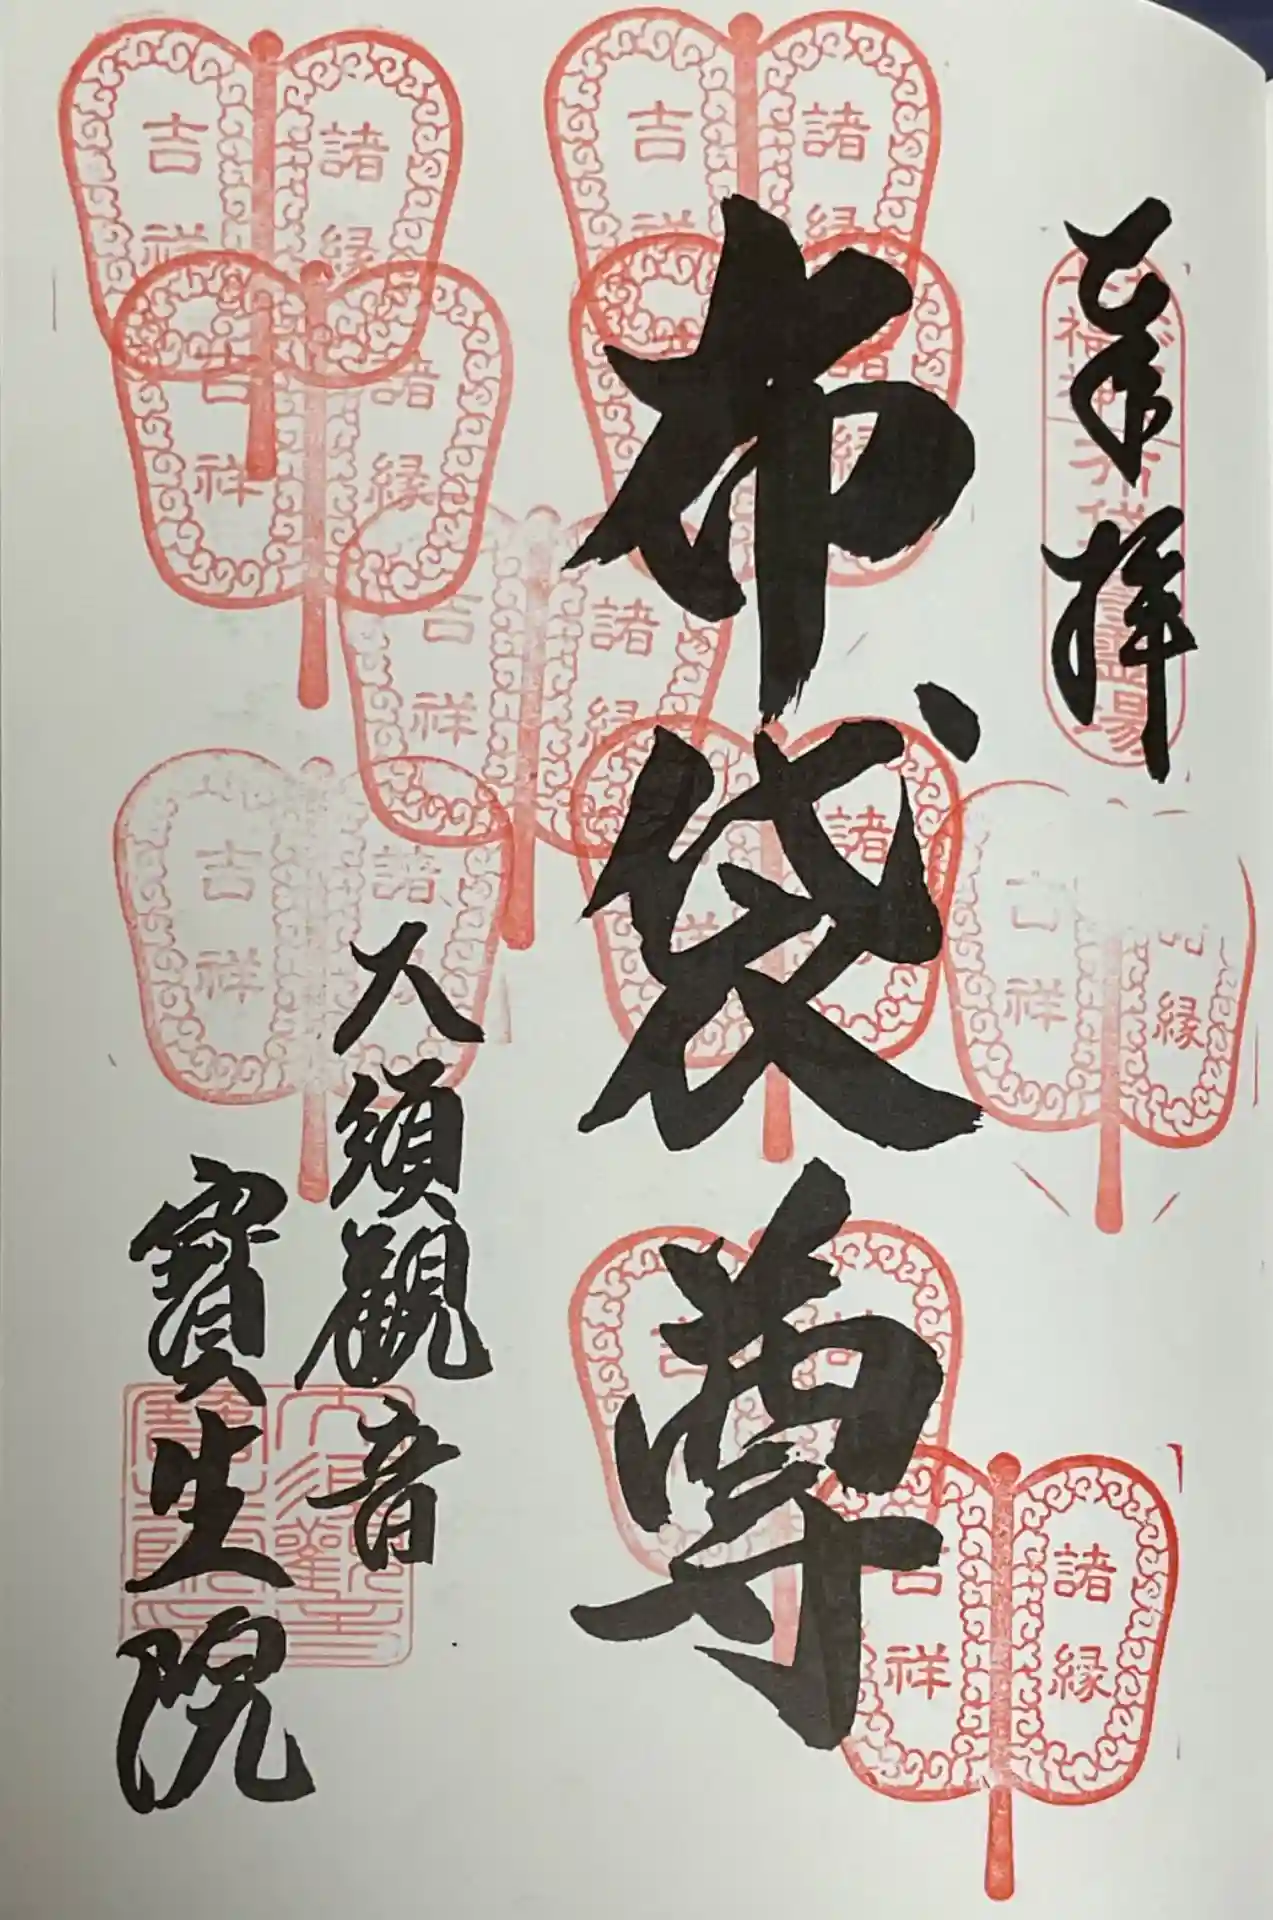 奉拝
布袋尊
大須観音
寳生院
諸縁
吉祥
諸縁
吉祥
諸縁
吉祥
諸縁
吉祥
諸縁
吉祥
諸
縁
吉祥
諸
吉祥
諸縁
吉祥